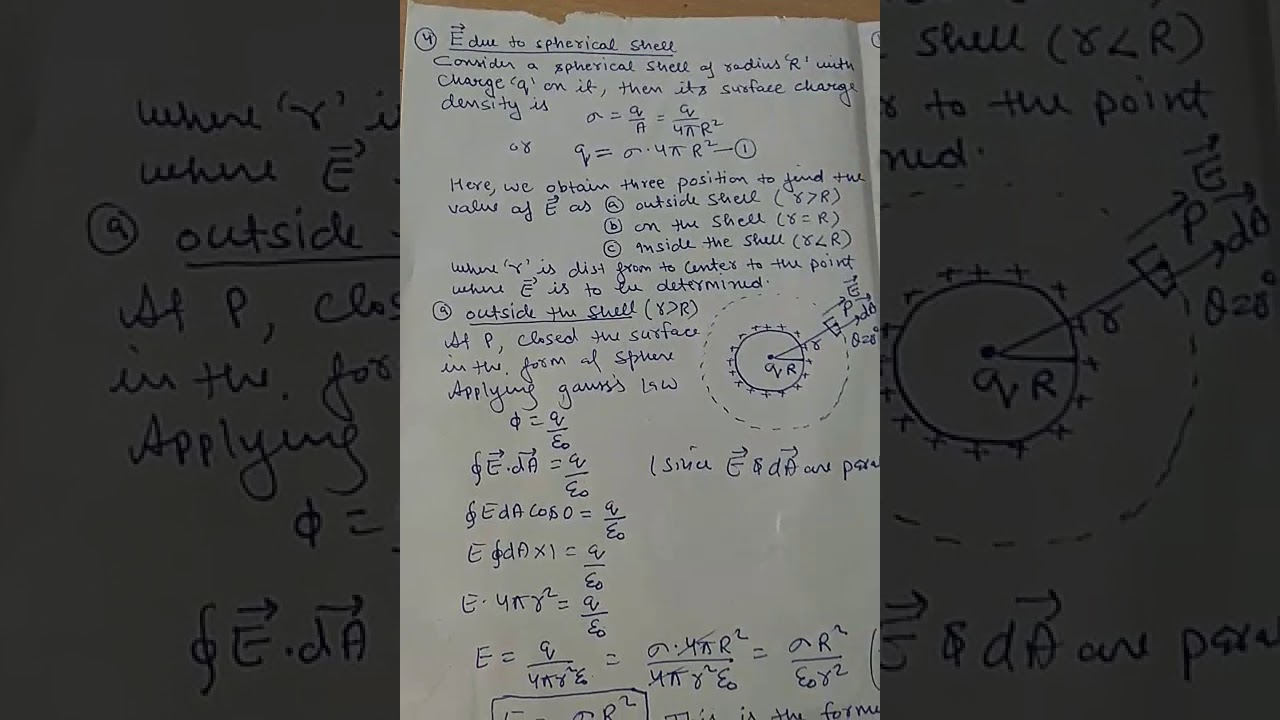 ④ E⃗ due to spherical shell
Consider a spherical shell of radius 'R' with
charge 'q' on it, then its surface charge
density is
σ = q/A = q/4πR²
or q = σ·4πR² —①
Here, we obtain three position to find the
value of E⃗ as ⓐ outside shell (r>R)
ⓑ on the shell (r=R)
ⓒ inside the shell (r<R)
where 'r' is dist from to center to the point
where E⃗ is to be determined.
ⓐ outside the shell (r>R)
At P, closed the surface
in the form of sphere
Applying gauss's law
ϕ = q/ε₀
∮E⃗·dA⃗ = q/ε₀ (since E⃗ & dA⃗ are para
∮E dA cos 0 = q/ε₀
E∮dA×1 = q/ε₀
E·4πr² = q/ε₀
E = q/4πr²ε₀ = σ·4πR²/4πr²ε₀ = σR²/ε₀r² (
E = σR² This is the forme
E⃗
P
dA⃗
θ=0°
r
q R
shell (r<R)
r to the point
ned.
E⃗
P
dA⃗
θ=0°
r
q R
E⃗ & dA⃗ are para
where 'r' i
where E⃗
ⓐ outside
At P, clos
in the. for
Applying
ϕ =
∮E⃗·dA⃗